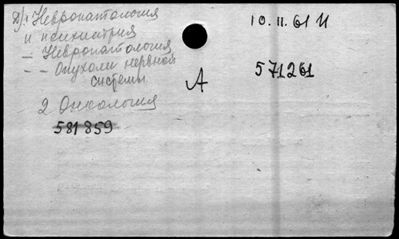 2/1 Невропатология
и психиатрия
— Невропатология
— — Опухоли нервной
системы
2 Онкология
581859
10.II.61 И
А
571261